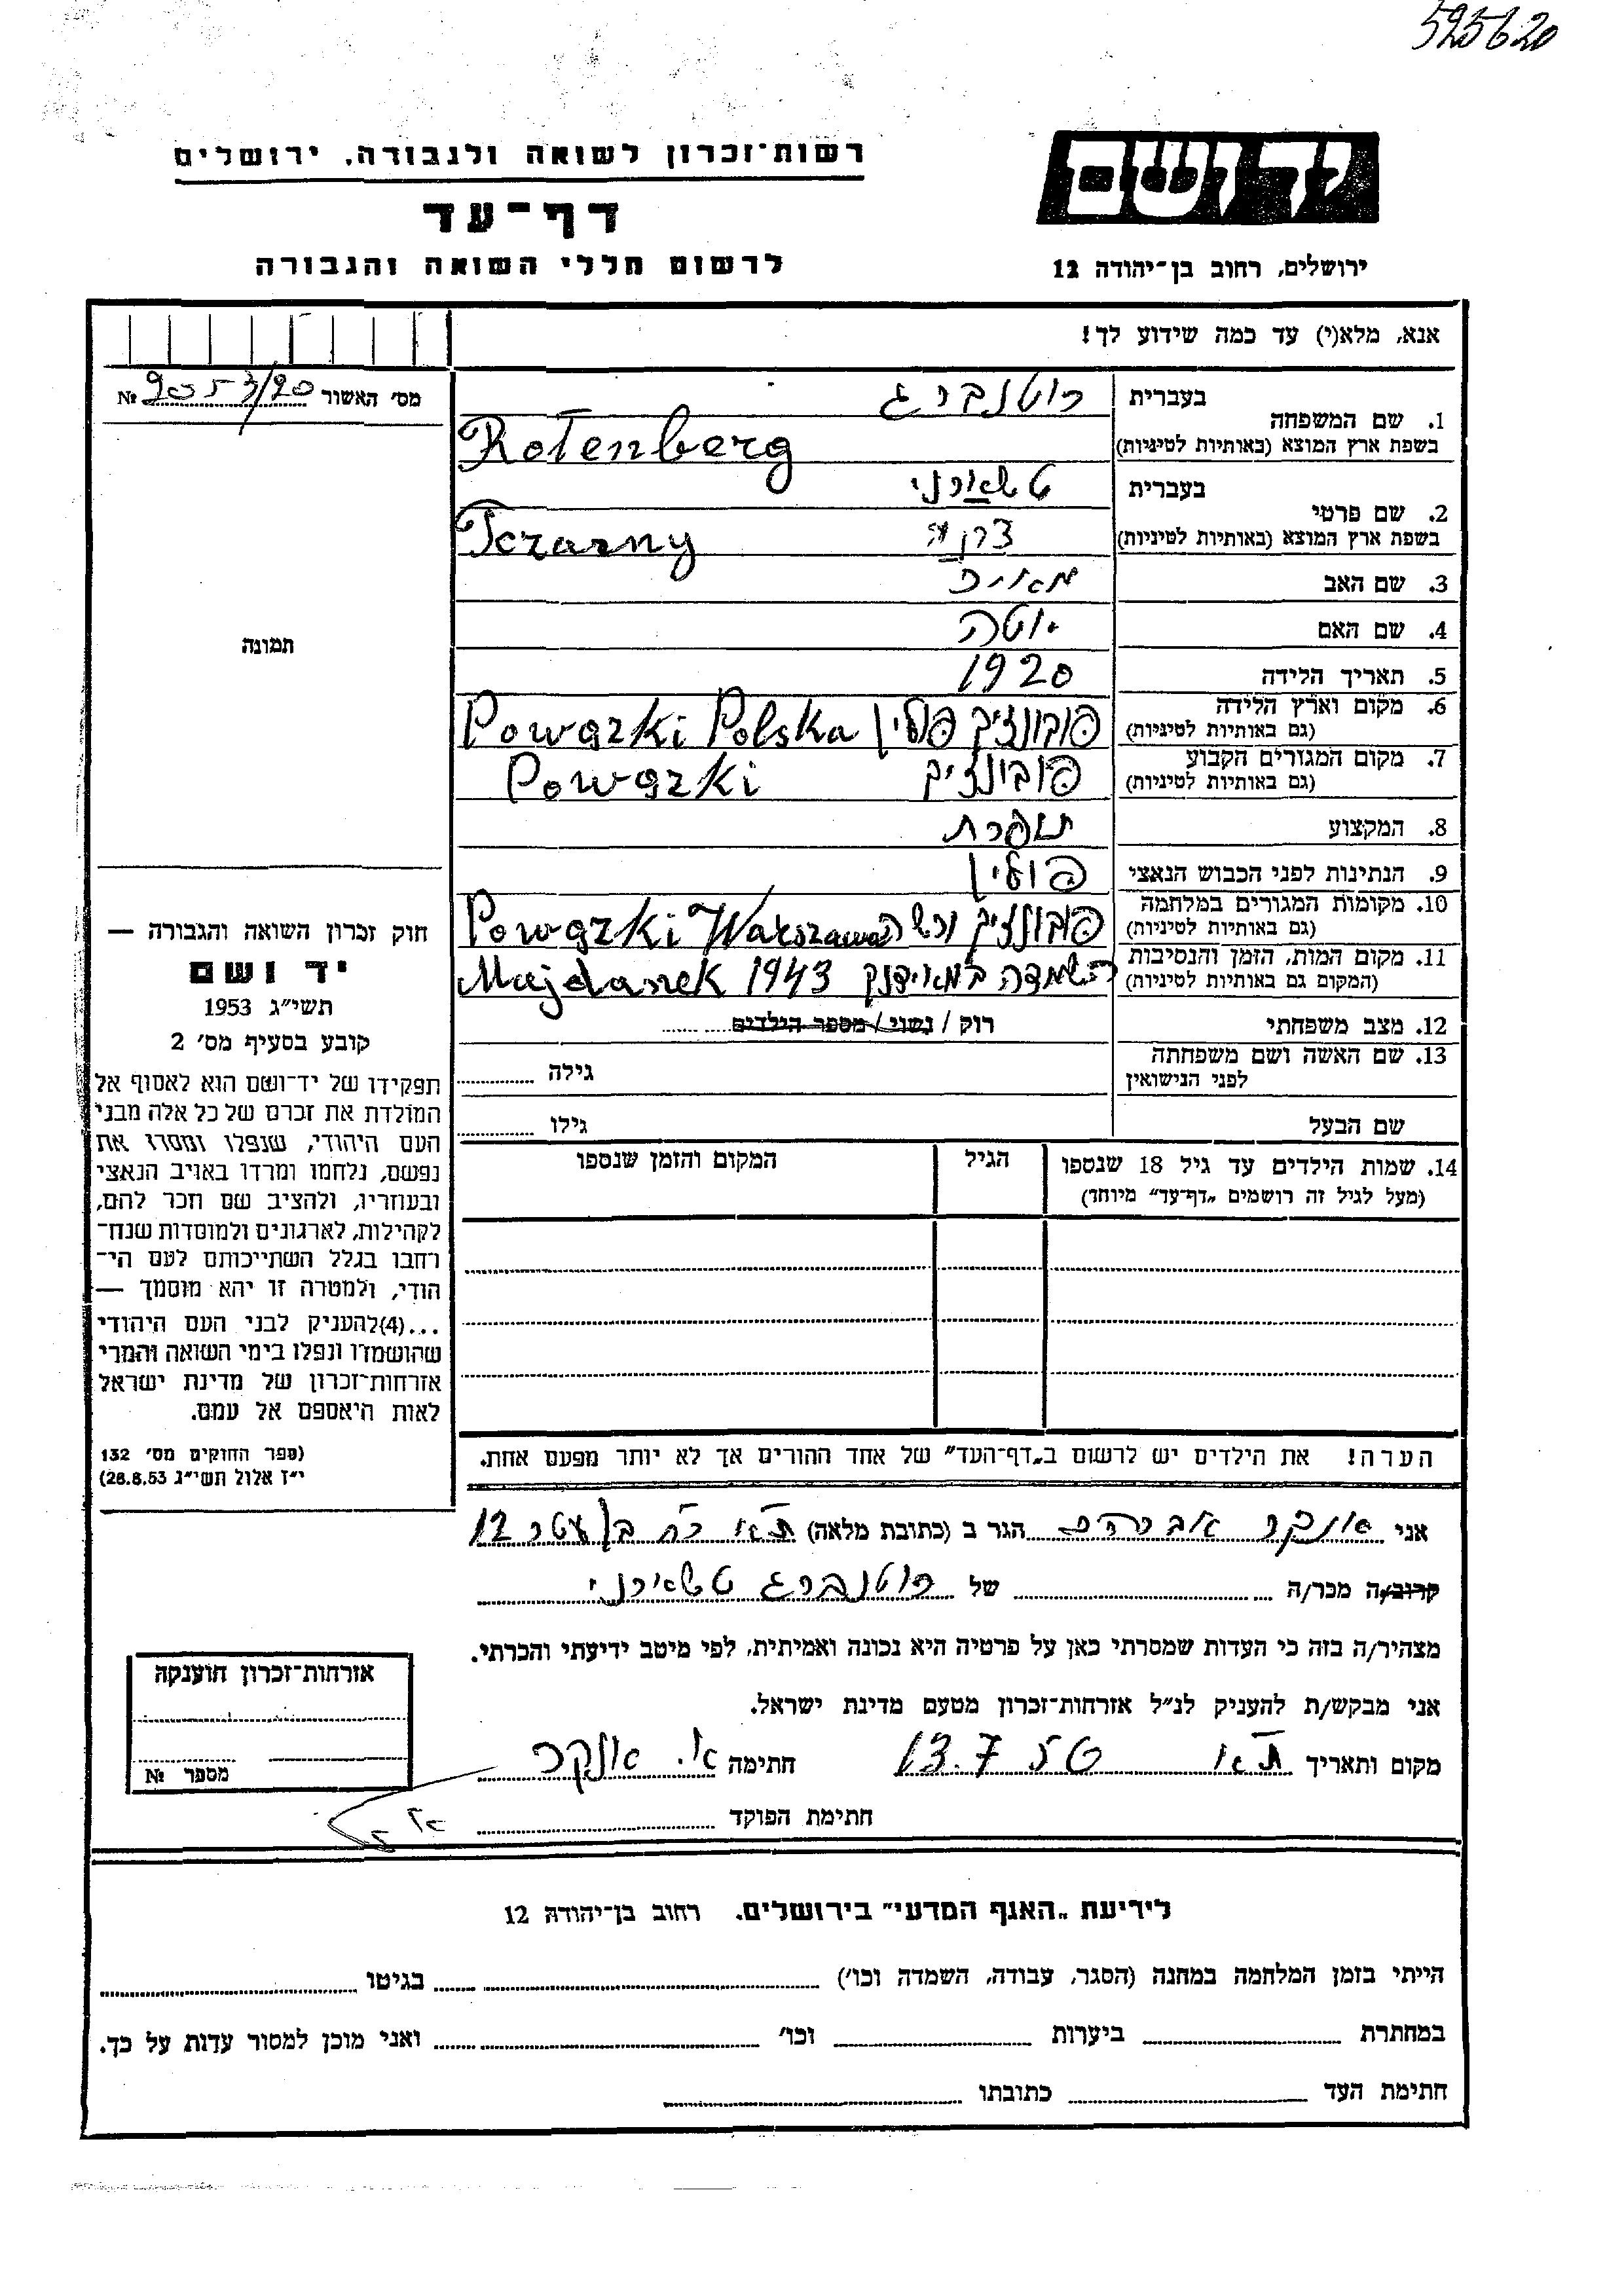 525620
רשות־זכרון לשואה ולגבורה, ירושלים
יד ושם
דף־עד
לרשום חללי השואה והגבורה
ירושלים, רחוב בן־יהודה 12
אנא, מלא(י) עד כמה שידוע לך!
מס׳ האשור № 2053/20
1. שם המשפחה בעברית רוטנברג
בשפת ארץ המוצא (באותיות לטיניות) Rotenberg
2. שם פרטי בעברית טשארני
בשפת ארץ המוצא (באותיות לטיניות) Tczarny
3. שם האב מאיר
4. שם האם יוטה
5. תאריך הלידה 1920
6. מקום וארץ הלידה
(גם באותיות לטיניות) פובונזיק פולין Powązki Polska
7. מקום המגורים הקבוע
(גם באותיות לטיניות) פובונזיק Powązki
8. המקצוע תופרת
9. הנתינות לפני הכבוש הנאצי פולין
10. מקומות המגורים במלחמה
(גם באותיות לטיניות) פובונזיק ורשה Powązki Warszawa
11. מקום המות, הזמן והנסיבות
(המקום גם באותיות לטיניות) השמדה במאידנק 1943 Majdanek
12. מצב משפחתי רוק / נשוי / מספר הילדים
13. שם האשה ושם משפחתה
לפני הנישואין גילה
שם הבעל גילו
14. שמות הילדים עד גיל 18 שנספו הגיל המקום והזמן שנספו
(מעל לגיל זה רושמים „דף־עד״ מיוחד)
הערה! את הילדים יש לרשום ב„דף־העד״ של אחד ההורים אך לא יותר מפעם אחת.
תמונה
חוק זכרון השואה והגבורה —
יד ושם
תשי״ג 1953
קובע בסעיף מס׳ 2
תפקידו של יד־ושם הוא לאסוף אל
המולדת את זכרם של כל אלה מבני
העם היהודי, שנפלו ומסרו את
נפשם, נלחמו ומרדו באויב הנאצי
ובעוזריו, ולהציב שם וזכר להם,
לקהילות, לארגונים ולמוסדות שנח־
רחבו בגלל השתייכותם לעם הי־
הודי, ולמטרה זו יהא מוסמך —
...(4)להעניק לבני העם היהודי
שהושמדו ונפלו בימי השואה והמרי
אזרחות־זכרון של מדינת ישראל
לאות היאספם אל עמם.
(ספר החוקים מס׳ 132
י״ז אלול תשי״ג 28.8.53)
אני אונקר אברהם הגר ב (כתובת מלאה) ת״א רח 12
קרוב/ה מכר/ה של רוטנברג טשארני
מצהיר/ה בזה כי העדות שמסרתי כאן על פרטיה היא נכונה ואמיתית, לפי מיטב ידיעתי והכרתי.
אני מבקש/ת להעניק לנ״ל אזרחות־זכרון מטעם מדינת ישראל.
מקום ותאריך ת״א 13.7 חתימה א. אונקר
חתימת הפוקד
אזרחות־זכרון הוענקה
מספר №
לידיעת „האגף המדעי״ בירושלים. רחוב בן־יהודה 12
הייתי בזמן המלחמה במחנה (הסגר, עבודה, השמדה וכו׳) בגיטו
במחתרת ביערות וכו׳ ואני מוכן למסור עדות על כך.
חתימת העד כתובתו